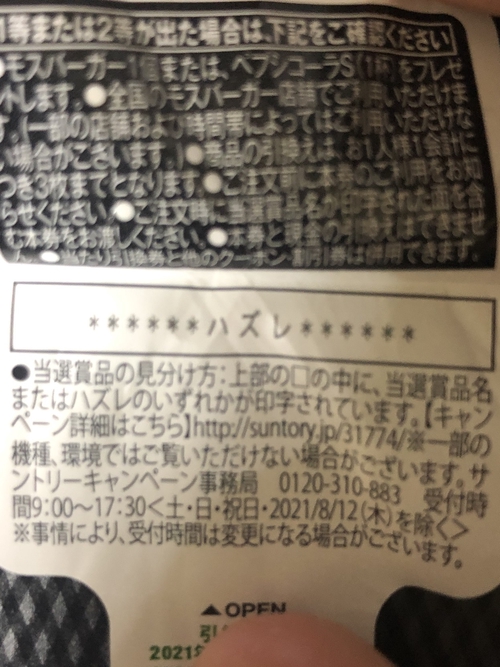 1等または2等が出た場合は、下記をご確認ください
モスバーガー1個または、ペプシコーラS(1杯)をプレゼ
ントします。●全国のモスバーガー店舗でご利用いただけま
す。(一部の店舗および時間帯によってはご利用いただけな
い場合がございます。)●商品の引換えは、お1人様1会計に
つき3枚までとなります。●ご注文前に本券のご利用をお知
らせください。●ご注文時に当選賞品名が印字された面を含
む本券をお渡しください。●本券と現金の引換えはできませ
ん。●当たり引換券と他のクーポン・割引券は併用できます。
******ハズレ******
●当選賞品の見分け方:上部の□の中に、当選賞品名
またはハズレのいずれかが印字されています。【キャン
ペーン詳細はこちら】http://suntory.jp/31774/※一部の
機種、環境ではご覧いただけない場合がございます。サ
ントリーキャンペーン事務局 0120-310-883 受付時
間9:00〜17:30<土・日・祝日・2021/8/12(木)を除く>
※事情により、受付時間は変更になる場合がございます。
▲OPEN
引
2021